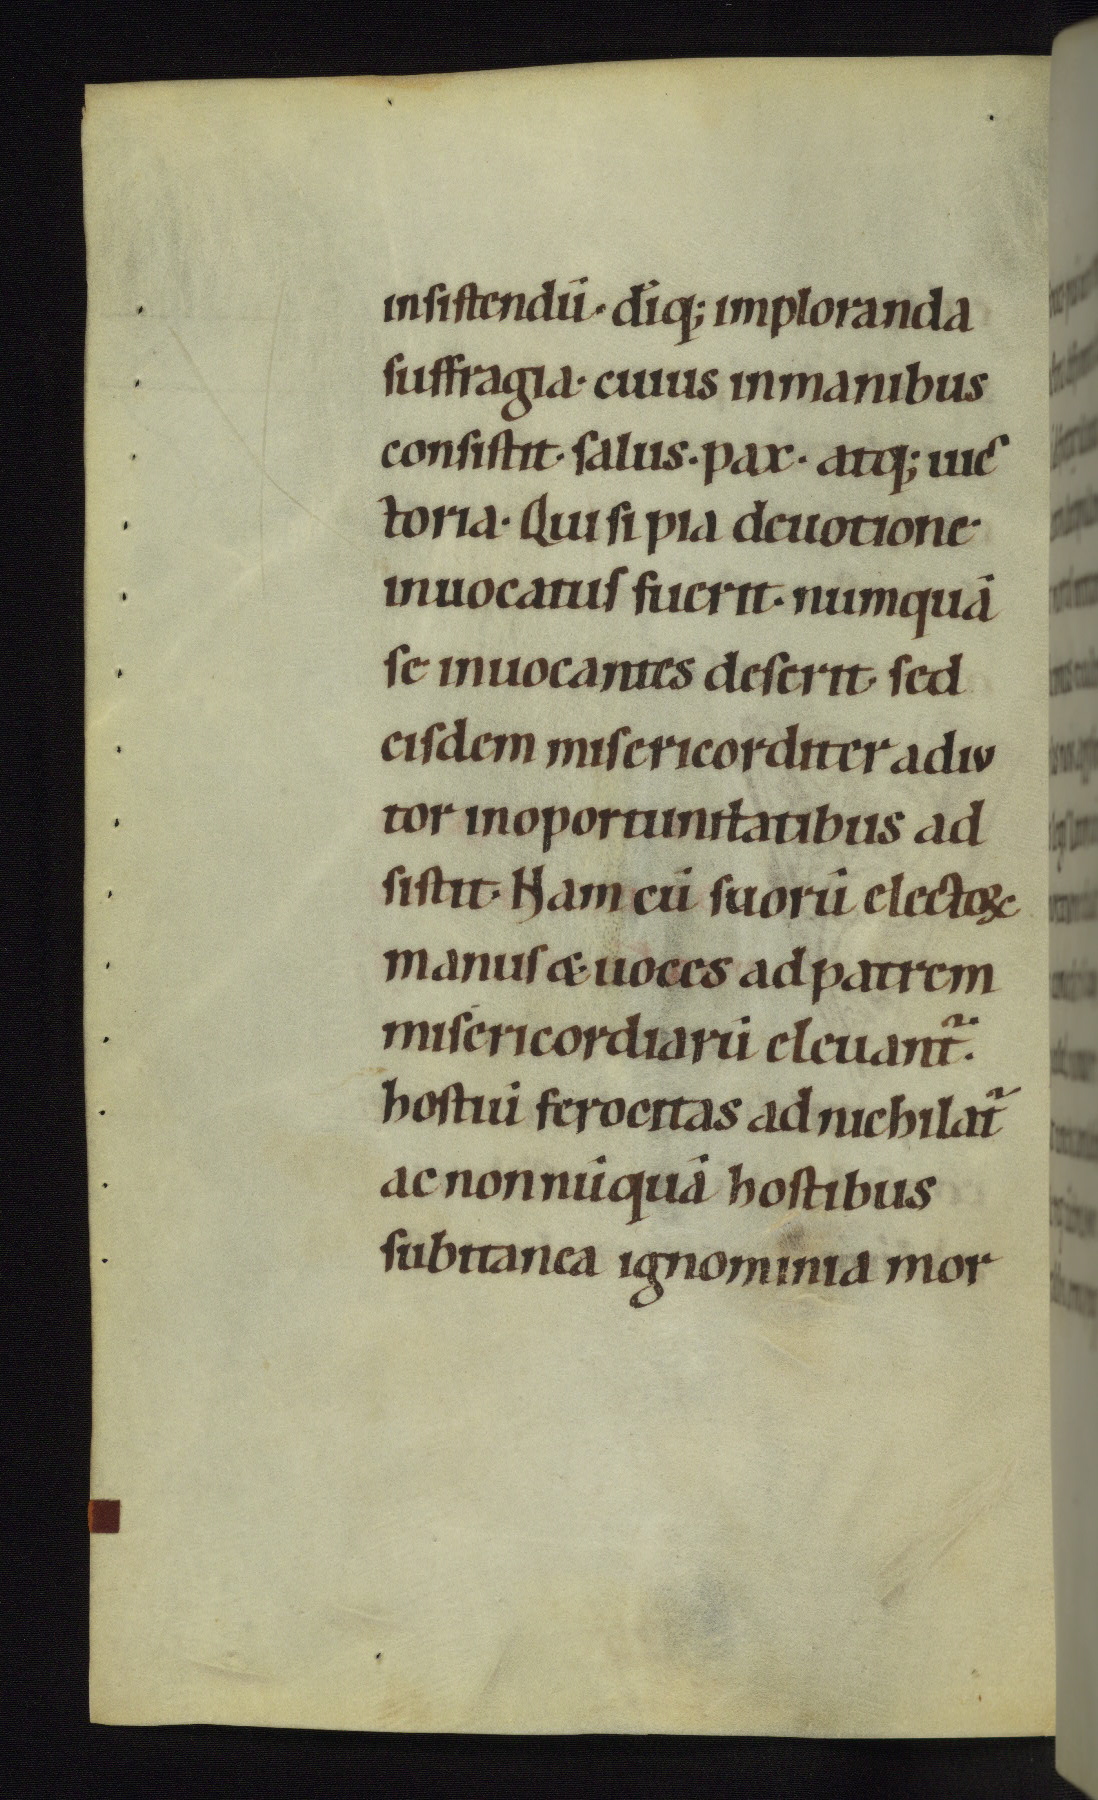 insistendū· dīq; imploranda
suffragia· cuius inmanibus
consistit· salus· pax· atq; uic
toria· Qui si pia deuotione·
inuocatus fuerit· numquā
se inuocantes deserit· sed
eisdem misericorditer adiu
tor inoportunitatibus ad
sistit· Nam cū suorū electoꝝ
manus & uoces ad patrem
misericordiarū eleuant᷑·
hostiū ferocitas ad nichilat᷑
ac non nūquā hostibus
subitanea ignominia mor